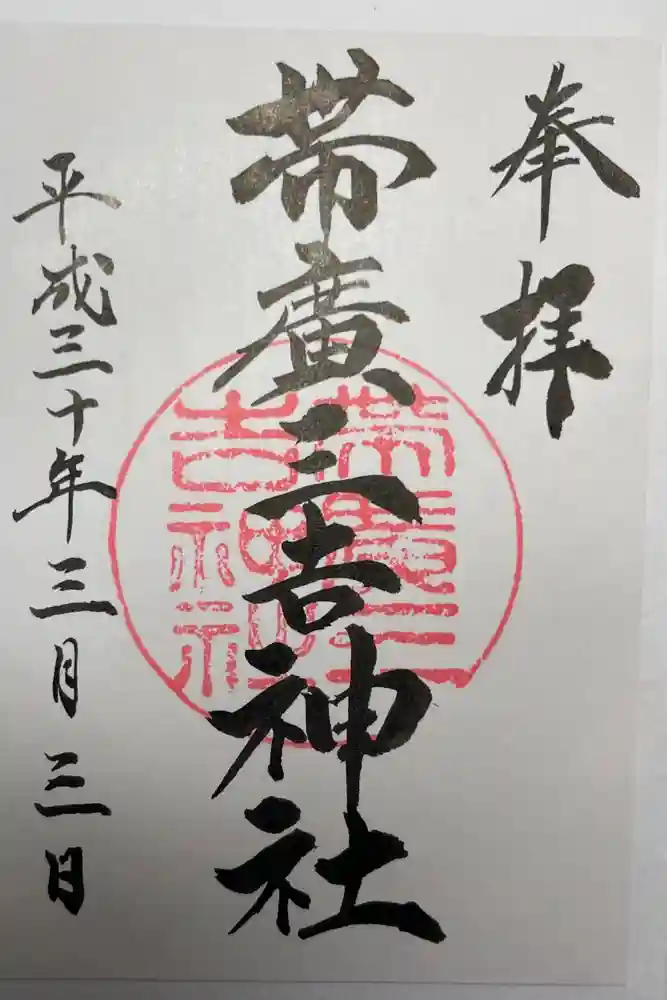 奉拝
帯廣三吉神社
平成三十年三月三日
帯廣三吉神社